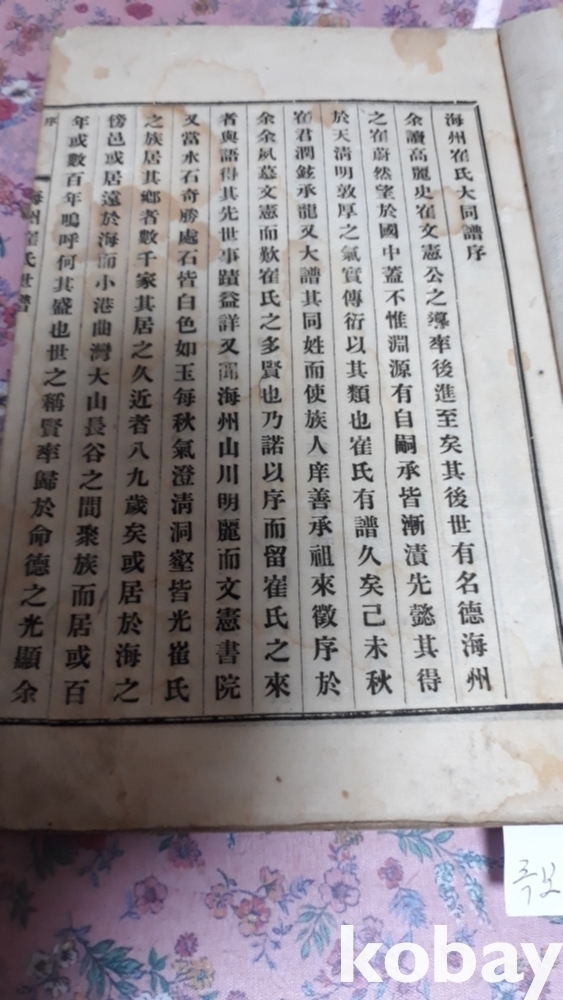 海州崔氏大同譜序
余讀高麗史崔文憲公之導率後進至矣其後世有名德海州
之崔蔚然望於國中蓋不惟淵源有自嗣承皆漸漬先懿其得
於天清明敦厚之氣實傳衍以其類也崔氏有譜久矣己未秋
崔君潤鉉承龍又大譜其同姓而使族人庠善承祖來徵序於
余余夙慕文憲而歎崔氏之多賢也乃諾以序而留崔氏之來
者與語得其先世事蹟益詳又聞海州山川明麗而文憲書院
又當水石奇勝處石皆白色如玉每秋氣澄清洞壑皆光崔氏
之族居其鄉者數千家其居之久近者八九歲矣或居於海之
傍邑或居遠於海而小港曲灣大山長谷之間聚族而居或百
年或數百年嗚呼何其盛也世之稱賢率歸於命德之光顯余
海州崔氏世譜
序
족보
kobay